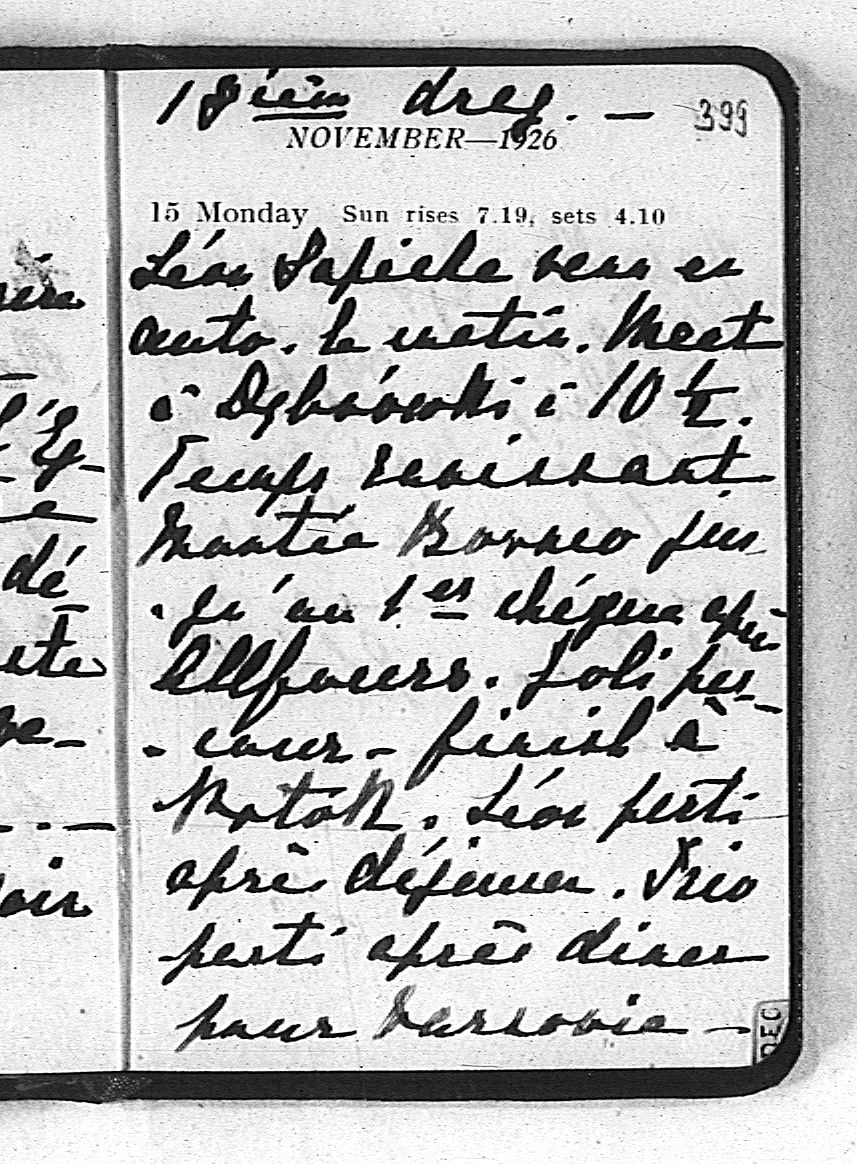 1 9ièm drag. — 399
NOVEMBER—1926
15 Monday Sun rises 7.19, sets 4.10
Léon Sapieha venu en
auto. le matin. Meet
à Dąbrówki à 10 ½.
Temps ravissant
Montée Borneo jus
- qu'au 1er chéque après
Allfours. Joli par-
- cours - finish à
Potok. Léon parti
après déjeuner. Trio
parti après diner
pour Varsovie —
dé
oir
DEC